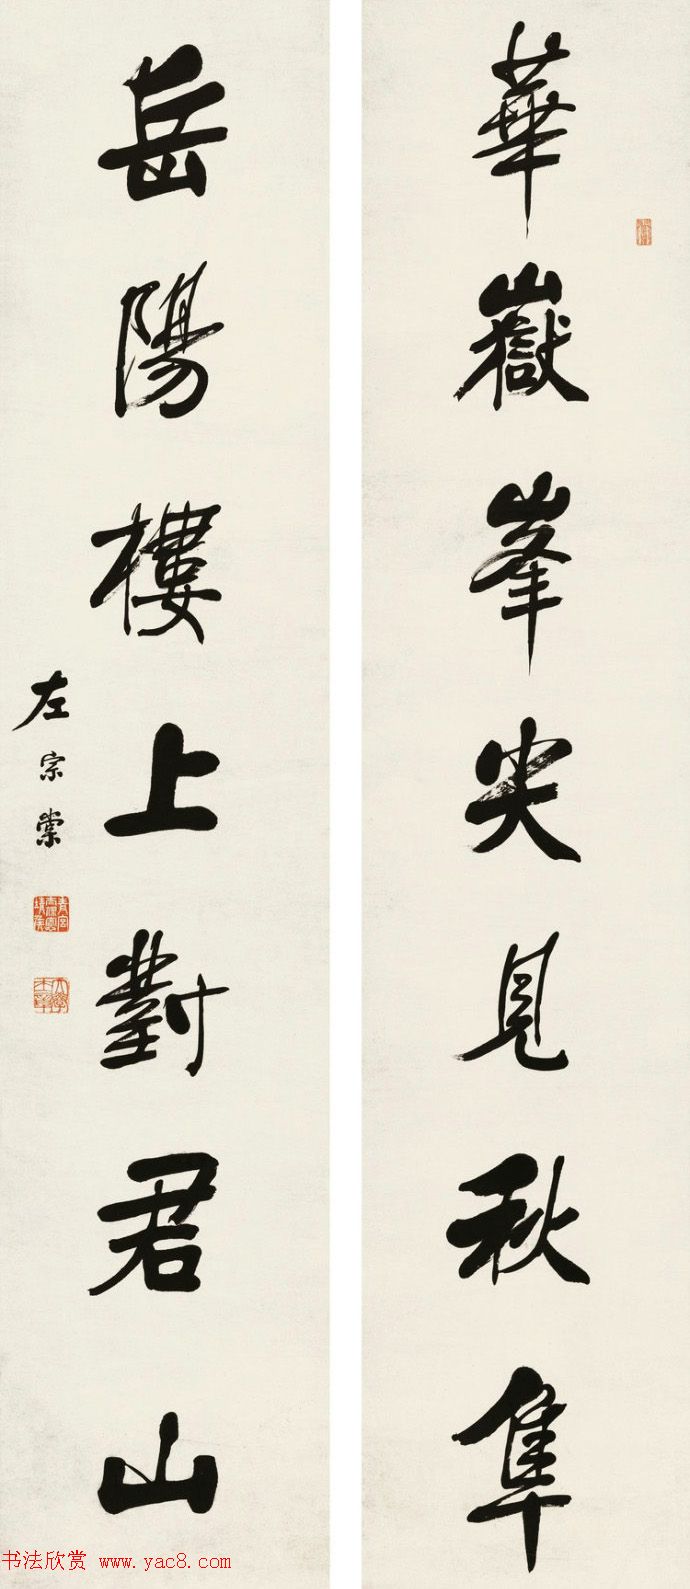 華嶽峯尖見秋隼
岳陽樓上對君山
左宗棠
书法欣赏 www.yac8.com